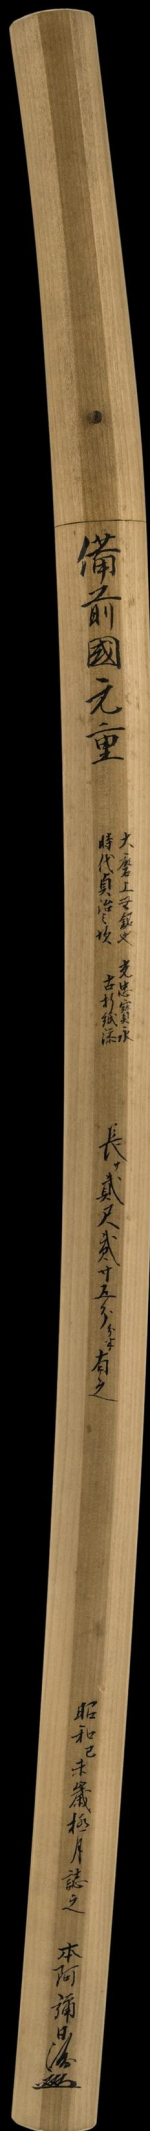 備前國元重
大磨上無銘也 光忠寳永
時代貞治之比 古折紙添
長サ貳尺貳寸五分半有之
昭和己未歳極月誌之 本阿彌日洲